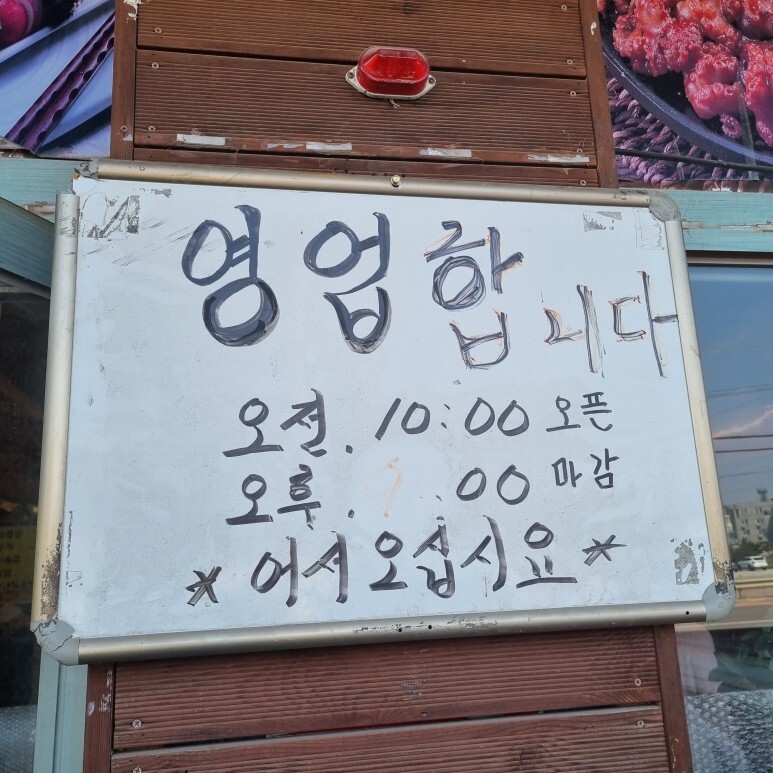 영업합니다
오전. 10:00 오픈
오후. 9:00 마감
* 어서오십시요 *